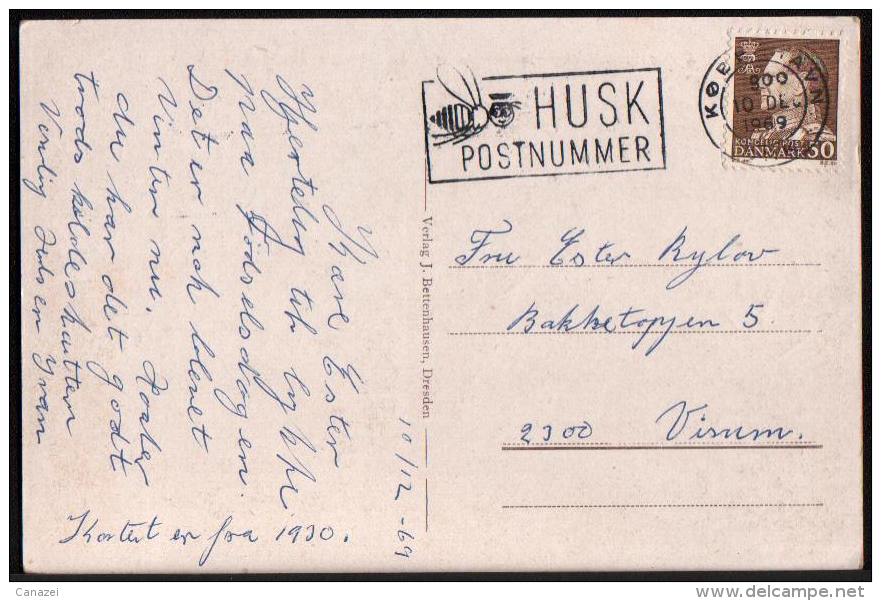 10/12 - 69
Kære Ester
Hjertelig til lykke
paa Fødselsdagen.
Det er nok blevet
Vinter nu. Haaber
du har det godt
trods
Venlig Yvan
Kortet er fra 1930.
Verlag J. Bettenhausen, Dresden
HUSK
POSTNUMMER
KØBENHAVN
900
10 DEC
1969
KONGELIG POST
DANMARK 50
Fru Ester Rylov
Bakketoppen 5.
2300 Virum.
Canazei
www.delcampe.net